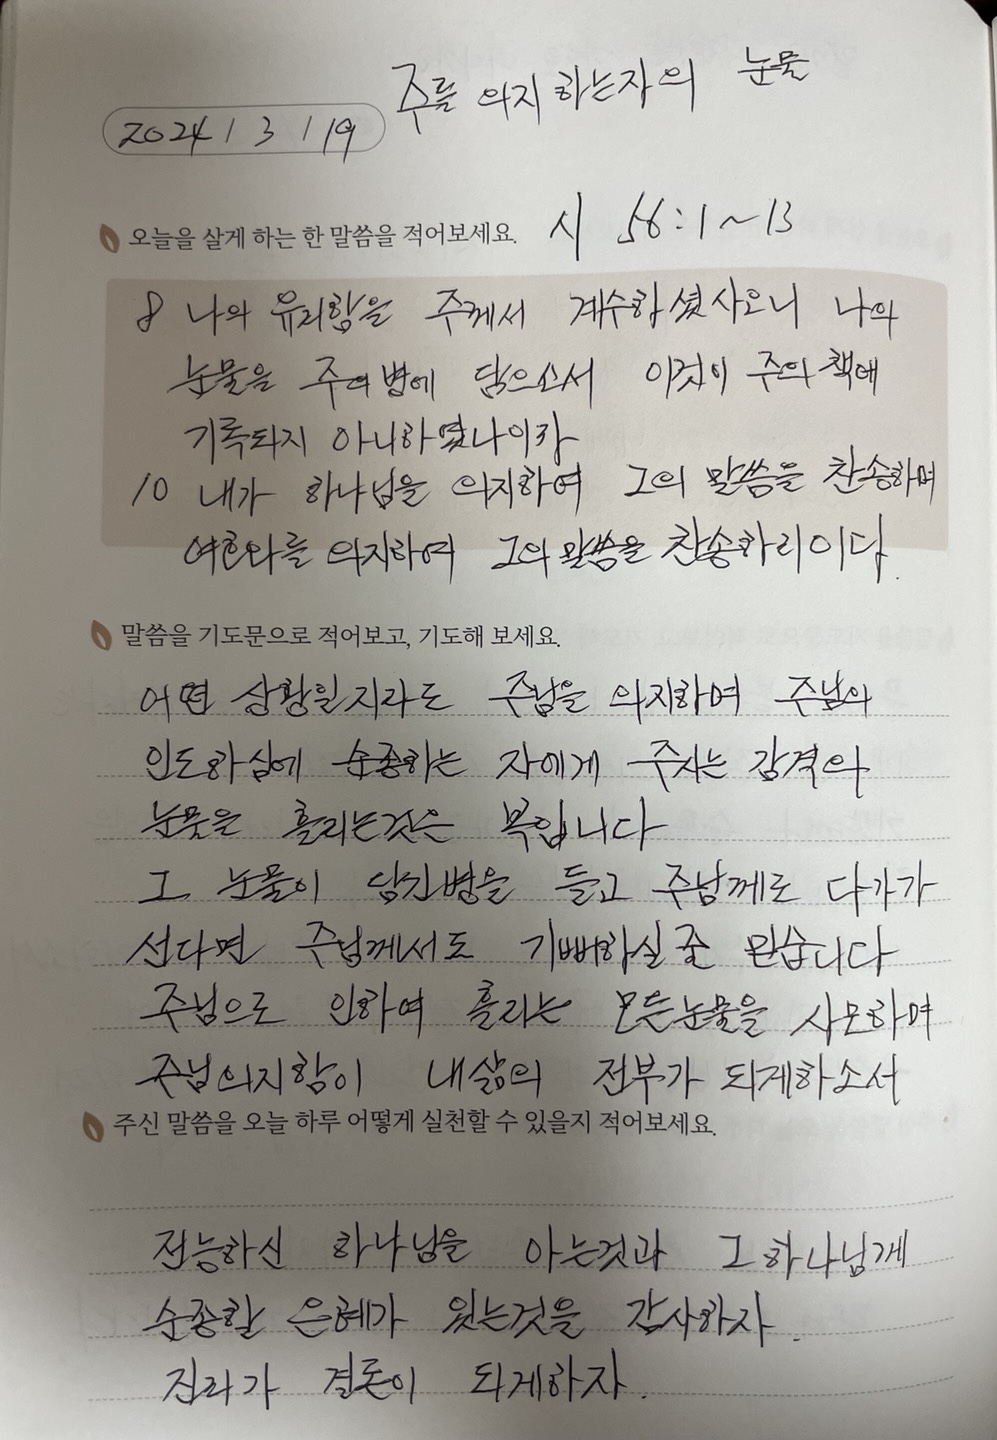 주를 의지하는자의 눈물
2024 / 3 / 19
오늘을 살게 하는 한 말씀을 적어보세요. 시 56:1~13
8 나의 유리함을 주께서 계수하셨사오니 나의
눈물을 주의 병에 담으소서 이것이 주의 책에
기록되지 아니하였나이까
10 내가 하나님을 의지하여 그의 말씀을 찬송하며
여호와를 의지하여 그의 말씀을 찬송하리이다.
말씀을 기도문으로 적어보고, 기도해 보세요.
어떤 상황일지라도 주님을 의지하며 주님의
인도하심에 순종하는 자에게 주시는 감격의
눈물을 흘리는것은 복입니다
그 눈물이 담긴병을 들고 주님께로 다가가
선다면 주님께서도 기뻐하실줄 믿습니다
주님으로 인하여 흘리는 모든눈물을 사모하며
주님의지함이 내삶의 전부가 되게하소서
주신 말씀을 오늘 하루 어떻게 실천할 수 있을지 적어보세요.
전능하신 하나님을 아는것과 그 하나님께
순종할 은혜가 있는것을 감사하자.
진리가 결론이 되게하자.